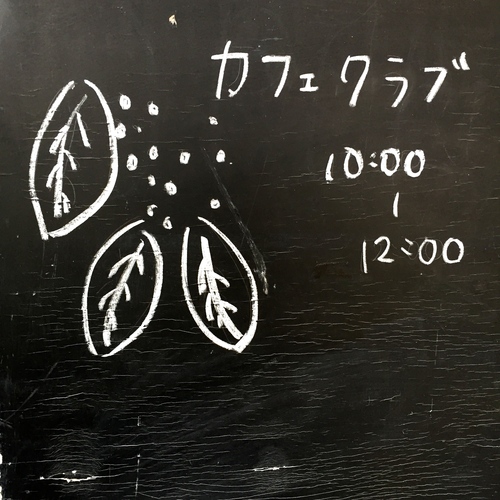 カフェクラブ
10:00
|
12:00